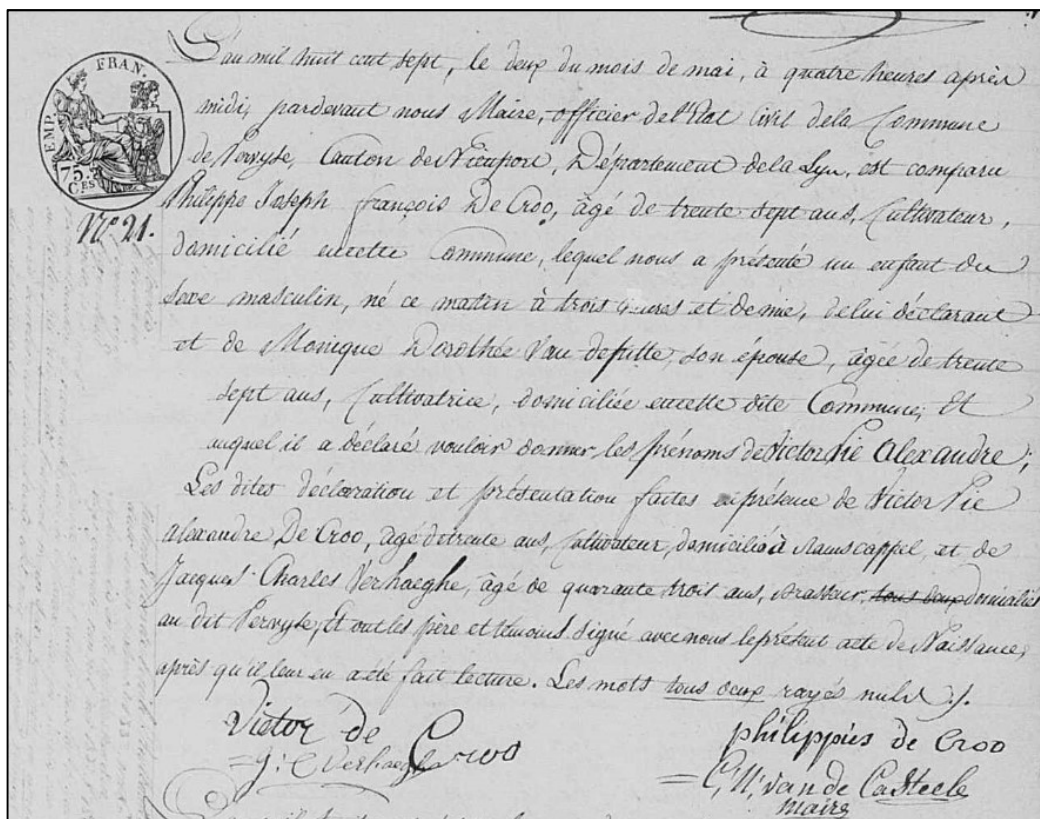 EMP. FRAN.
75.
C.ES
N.o 21.
L'an mil huit cent sept, le deux du mois de mai, à quatre heures après
midi, pardevant nous Maire, officier de l'Etat Civil dela Commune
de Pervyse, Canton de Nieuport, Département dela Lys, est comparu
Philippe Joseph françois De Croo, âgé de trente sept ans, Cultivateur,
domicilié encette Commune, lequel nous a présenté un enfant du
sexe masculin, né ce matin à trois heures et demie, delui déclarant
et de Monique Dorothée Van defulle, son épouse, âgée de trente
sept ans, Cultivatrice, domiciliée encette dite Commune, Et
auquel il a déclaré vouloir donner les prénoms de Victor Pie Alexandre;
Les dites déclaration et présentation faites enprésence de Victor Pie
Alexandre De Croo, âgé detrente ans, Cultivateur, domicilié à Ramscappel, et de
Jacques Charles Verhaeghe, âgé de quarante trois ans, brasseur, tous deux domiciliés
au dit Pervyse, Et ont les père et témoins signé avec nous leprésent acte de Naissance,
après qu'il leur en a été fait lecture. Les mots tous deux rayés nuls ./.
Victor de Croo
philippus de Croo
J: C Verhaeghe
C, N, van de Casteele
maire